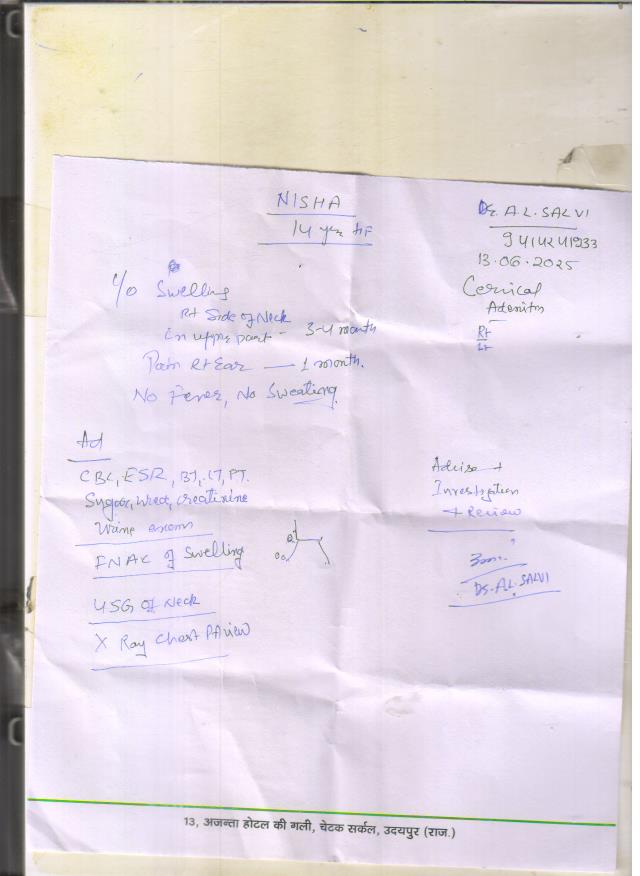 NISHA
14 yrs HF
Dr. A.L. SALVI
9414241933
13.06.2025
Cervical
Adenitis
Rt
C/o Swelling
Rt Side of Neck
in upper part - 3-4 month
Pain Rt Ear — 1 month.
No Fever, No Sweating
Ad
CBC, ESR, BT, CT, PT.
Sugar, Urea, Creatinine
Urine exam
FNAC of Swelling
USG of Neck
X Ray Chest PA view
Advise
Investigation
+ Review
Dr. A.L. SALVI
13, अजन्ता होटल की गली, चेटक सर्कल, उदयपुर (राज.)